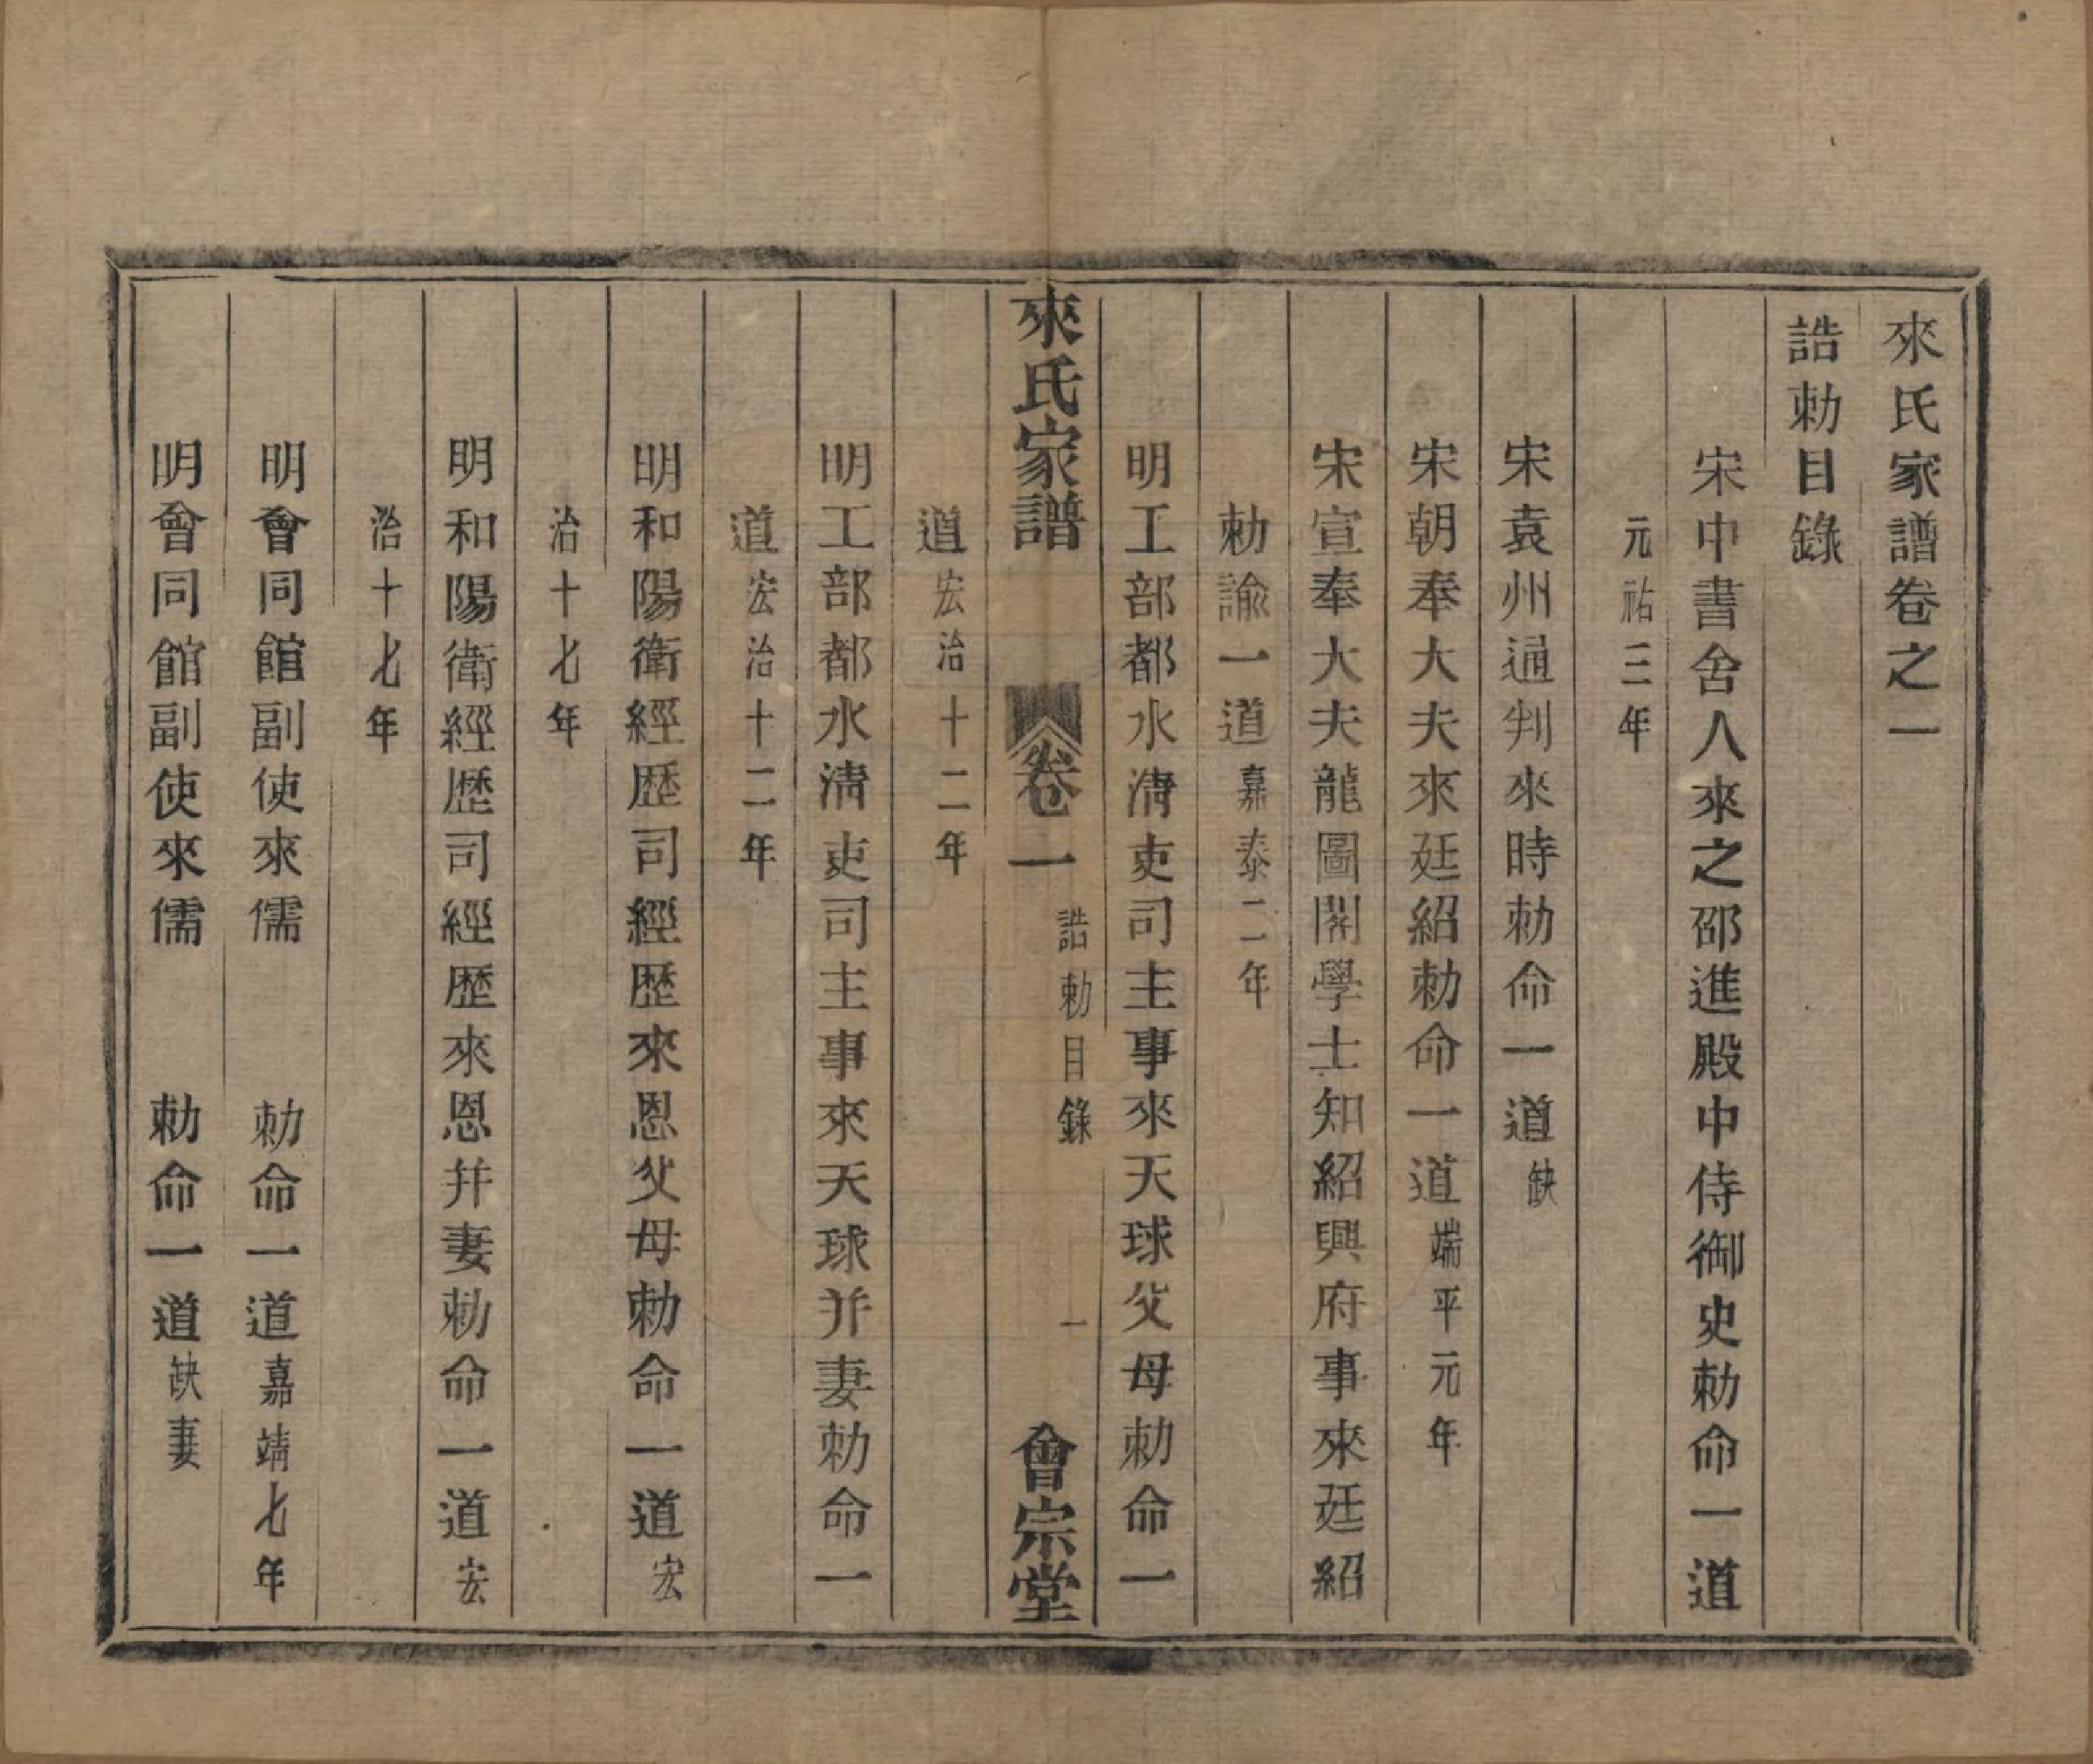 來氏家譜卷之一
誥勅目錄
宋中書舍人來之邵進殿中侍御史勅命一道
元祐三年
宋袁州通判來時勅命一道缺
宋朝奉大夫來廷紹勅命一道端平元年
宋宣奉大夫龍圖閣學士知紹興府事來廷紹
勅諭一道嘉泰二年
明工部都水淸吏司主事來天球父母勅命一
來氏家譜 卷一 誥勅目錄 一 會宗堂
道宏治十二年
明工部都水淸吏司主事來天球并妻勅命一
道宏治十二年
明和陽衛經歷司經歷來恩父母勅命一道宏
治十七年
明和陽衛經歷司經歷來恩并妻勅命一道宏
治十七年
明會同館副使來儒 勅命一道嘉靖七年
明會同館副使來儒 勅命一道缺妻